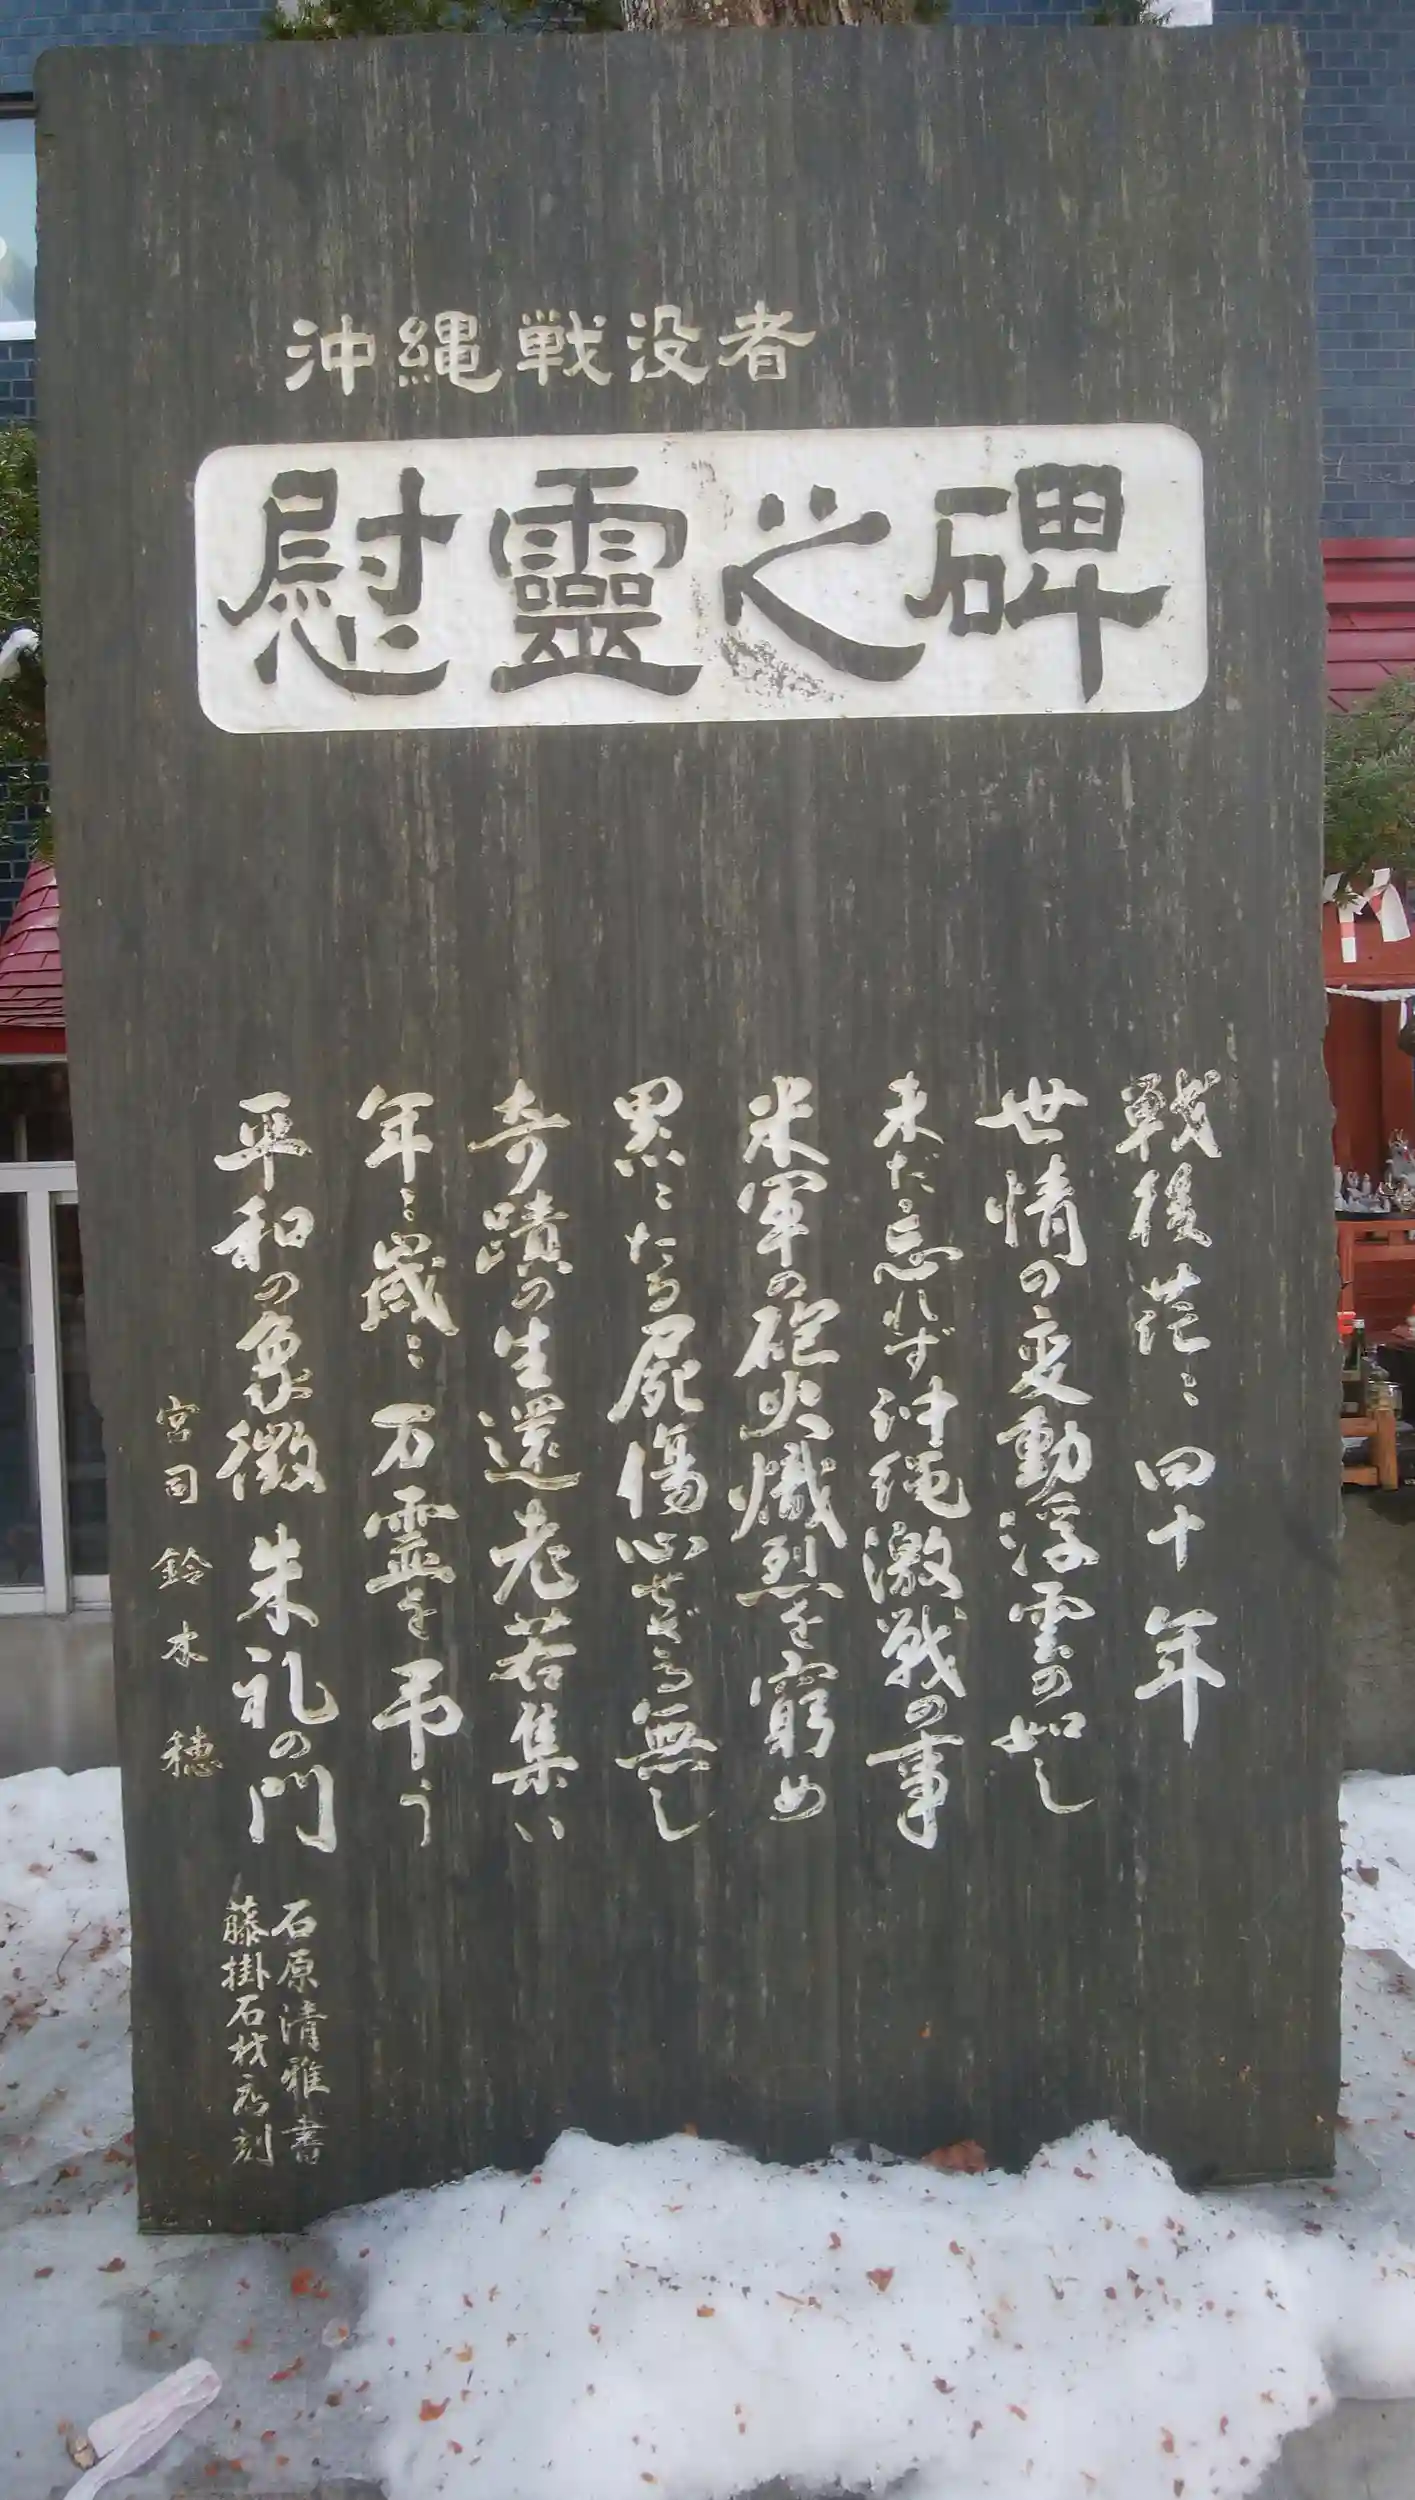 沖縄戦没者
慰靈之碑
戦後茫〻四十年
世情の変動浮雲の如し
未だ忘れず沖縄激戦の事
米軍の砲火熾烈を窮め
累〻たる屍傷心せざる無し
奇蹟の生還老若集い
年〻歳〻万霊を弔う
平和の象徴朱礼の門
石原清雅書
藤掛石材店刻
宮司鈴木穂